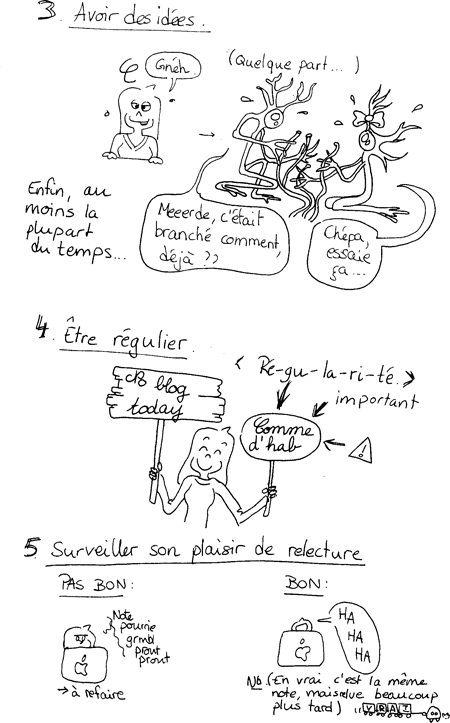 3. Avoir des idées.
Gnéh.
(Quelque part...)
Enfin, au
moins la
plupart
du temps...
Meeerde, c'était
branché comment,
déjà ??
Chépa,
essaie
ça...
4. Être régulier.
< Ré-gu-la-ri-té. >
important
blog
today
Comme
d'hab
!
5. Surveiller son plaisir de relecture
PAS BON :
Note
pourrie
grmbl
prout
prout
→ à refaire
BON :
HA
HA
HA
NB (En vrai c'est la même
note, mais relue beaucoup
plus tard)